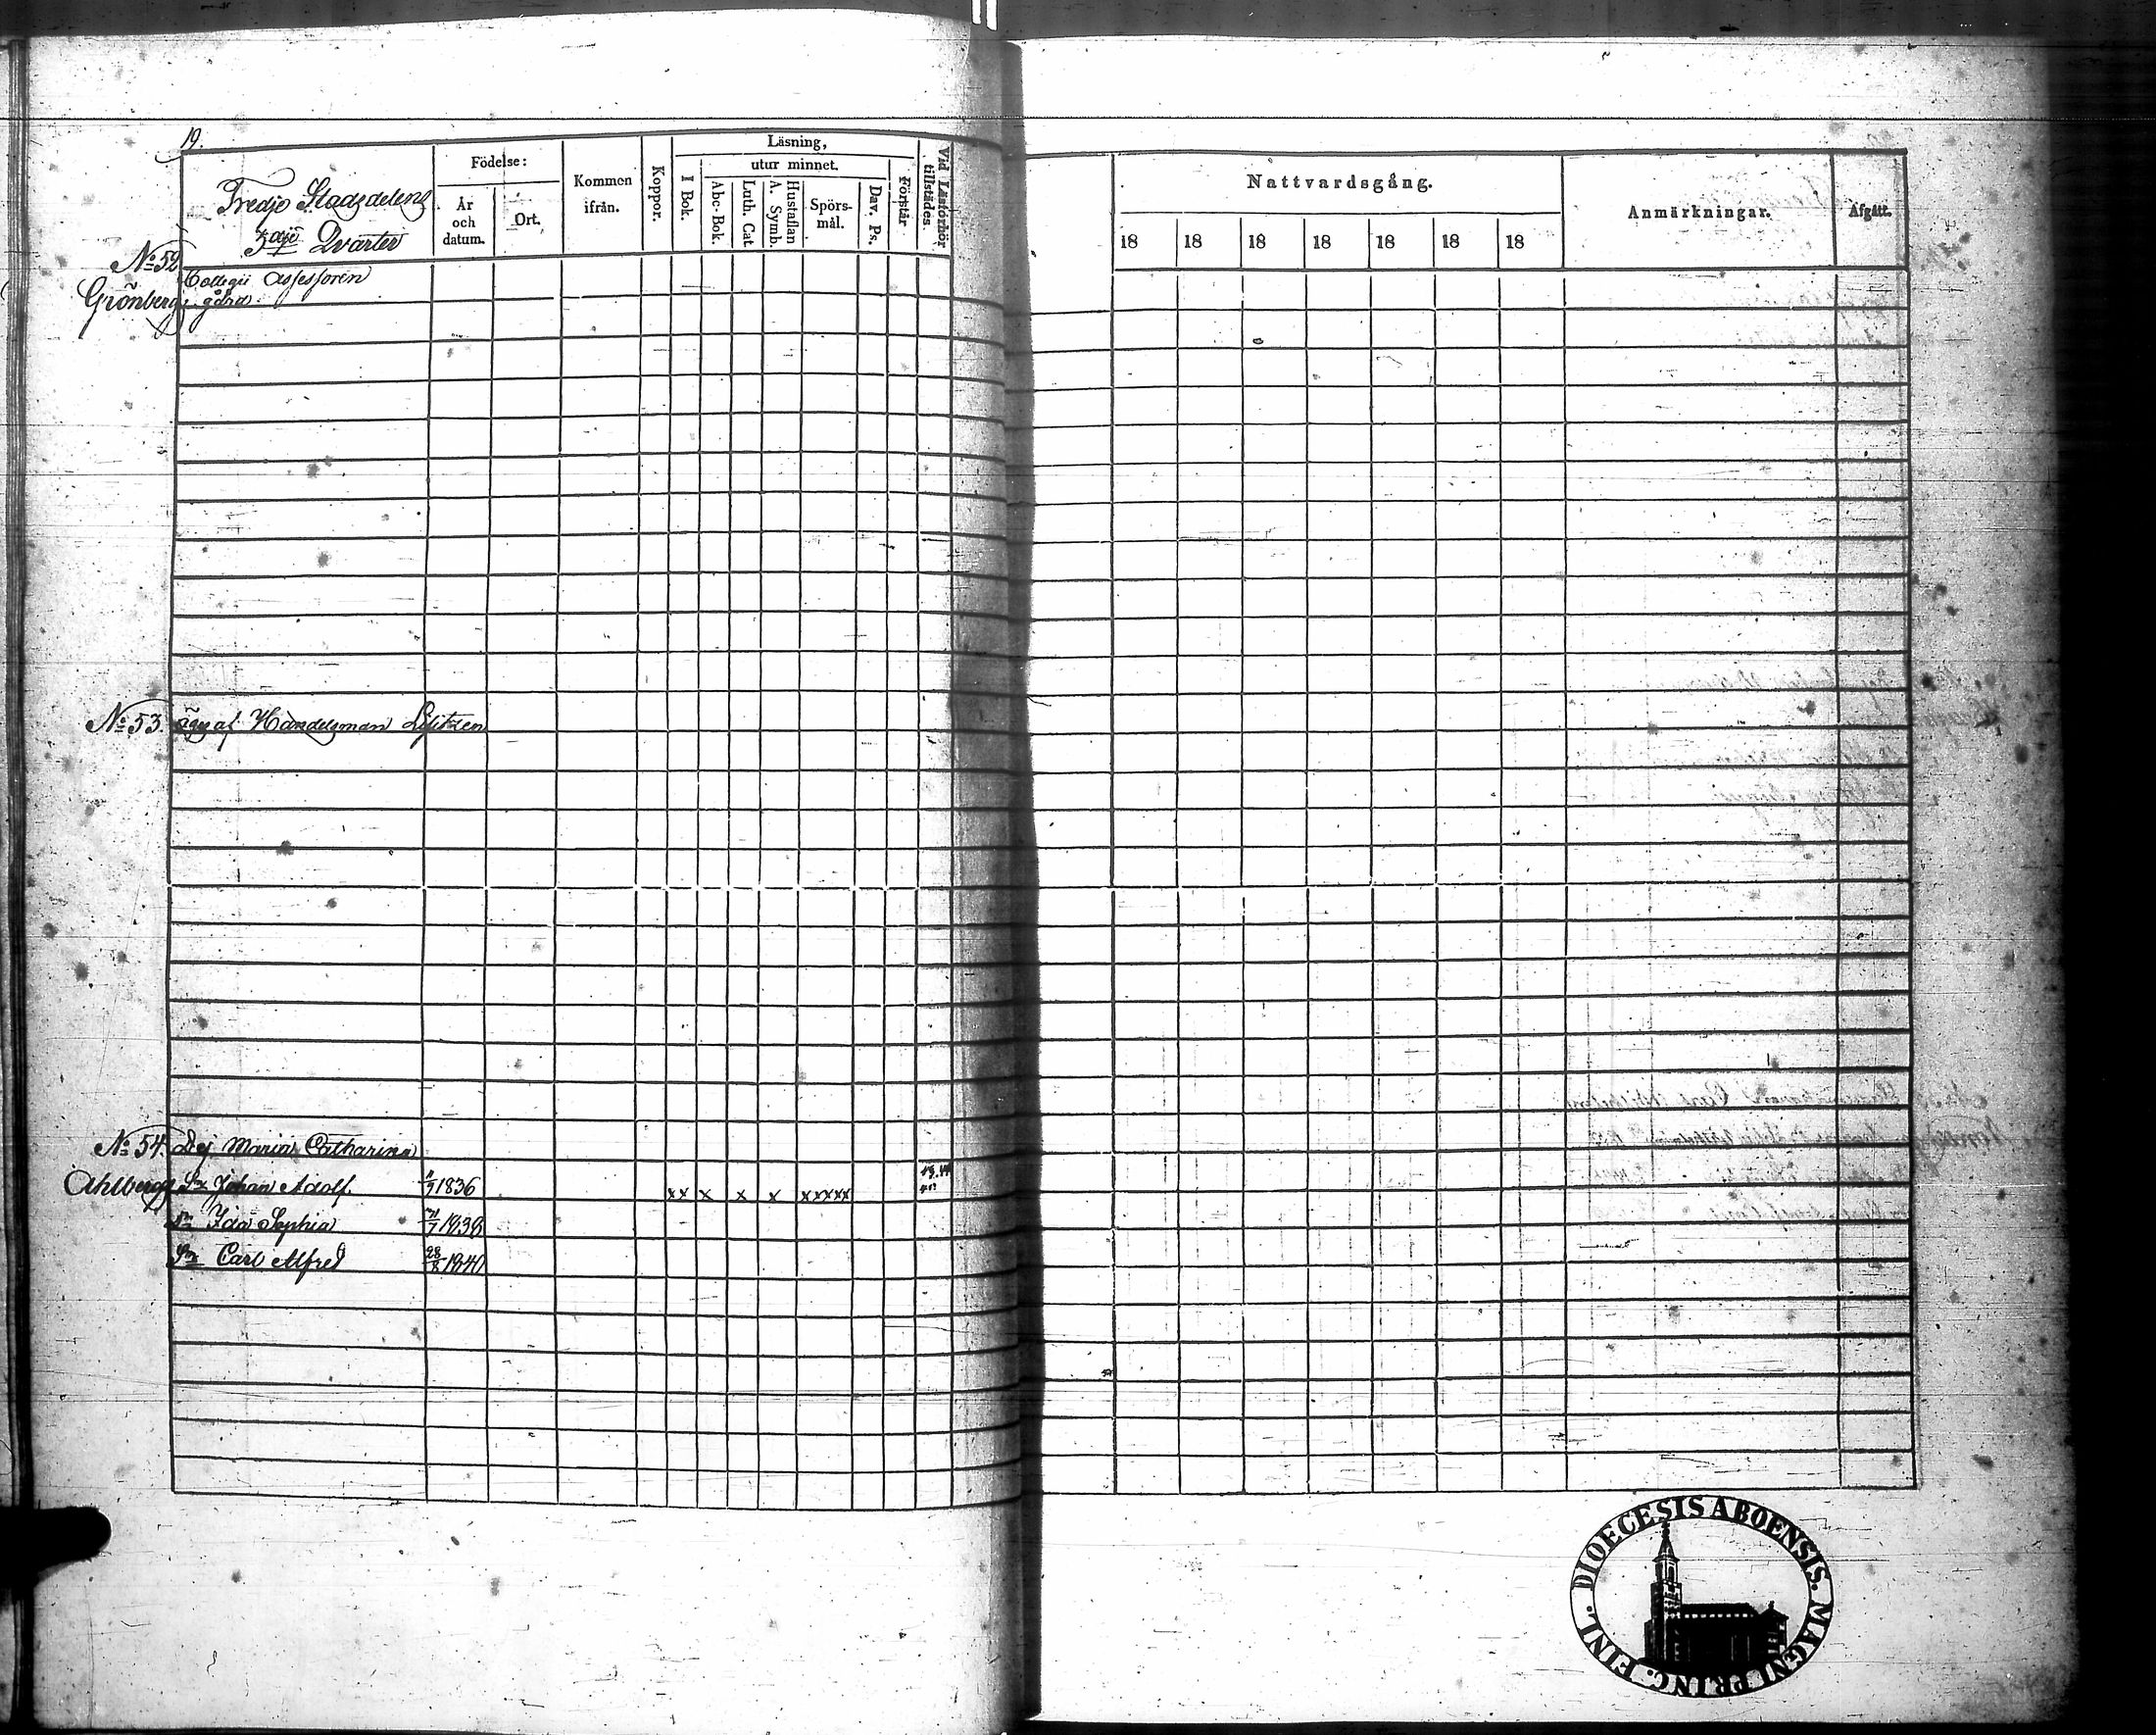 19.
Tredje Stadsdelens
3dje Qvarter
Födelse:
År och datum.
Ort.
Kommen ifrån.
Koppor.
Läsning,
utur minnet.
I Bok.
Abc-Bok.
Luth. Cat.
A. Symb.
Hustaflan
Spörs-mål.
Dav. Ps.
Förstår
Vid Läsförhör tillstädes.
Nattvardsgång.
18 18 18 18 18 18 18
Anmärkningar.
Afgått.
No 52 Collegii Assessoren
Grönbergs gård
No 53. äges af Handelsman
No 54. Dej Maria Catharina
Ahlbergs Sn Johan Adolf. 1836 xx x x x xxxxx
Ida Sophia 1838
Sn Carl Alfred 28/8 1840
DIOECESIS ABOENSIS. MAGNI PRINC. FINL.